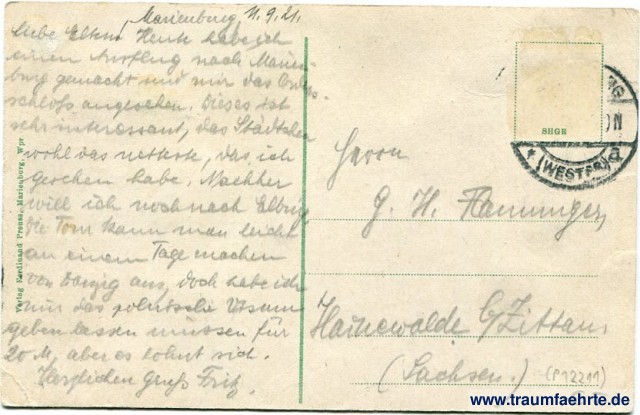 Marienburg 11.9.21.
Liebe Eltern! Heute habe ich
einen Ausflug nach Marien-
burg gemacht und mir das Ordens-
schloß angesehen. Dieses ist
sehr interessant, das Städtchen
wohl das netteste, das ich
gesehen habe. Nachher
will ich noch nach Elbing.
Die Tour kann man leicht
an einem Tage machen
von Danzig aus, doch habe ich
mir das polnische Visum
geben lassen müssen für
20 M, aber es lohnt sich.
Herzlichen Gruß Fritz.
Verlag Ferdinand Preuss, Marienburg, Wpr.
SHGR
(WESTPR)
Herrn
G. H. Hamminger,
Hainewalde b/Zittau
(Sachsen.)
(P12211)
www.traumfaehrte.de